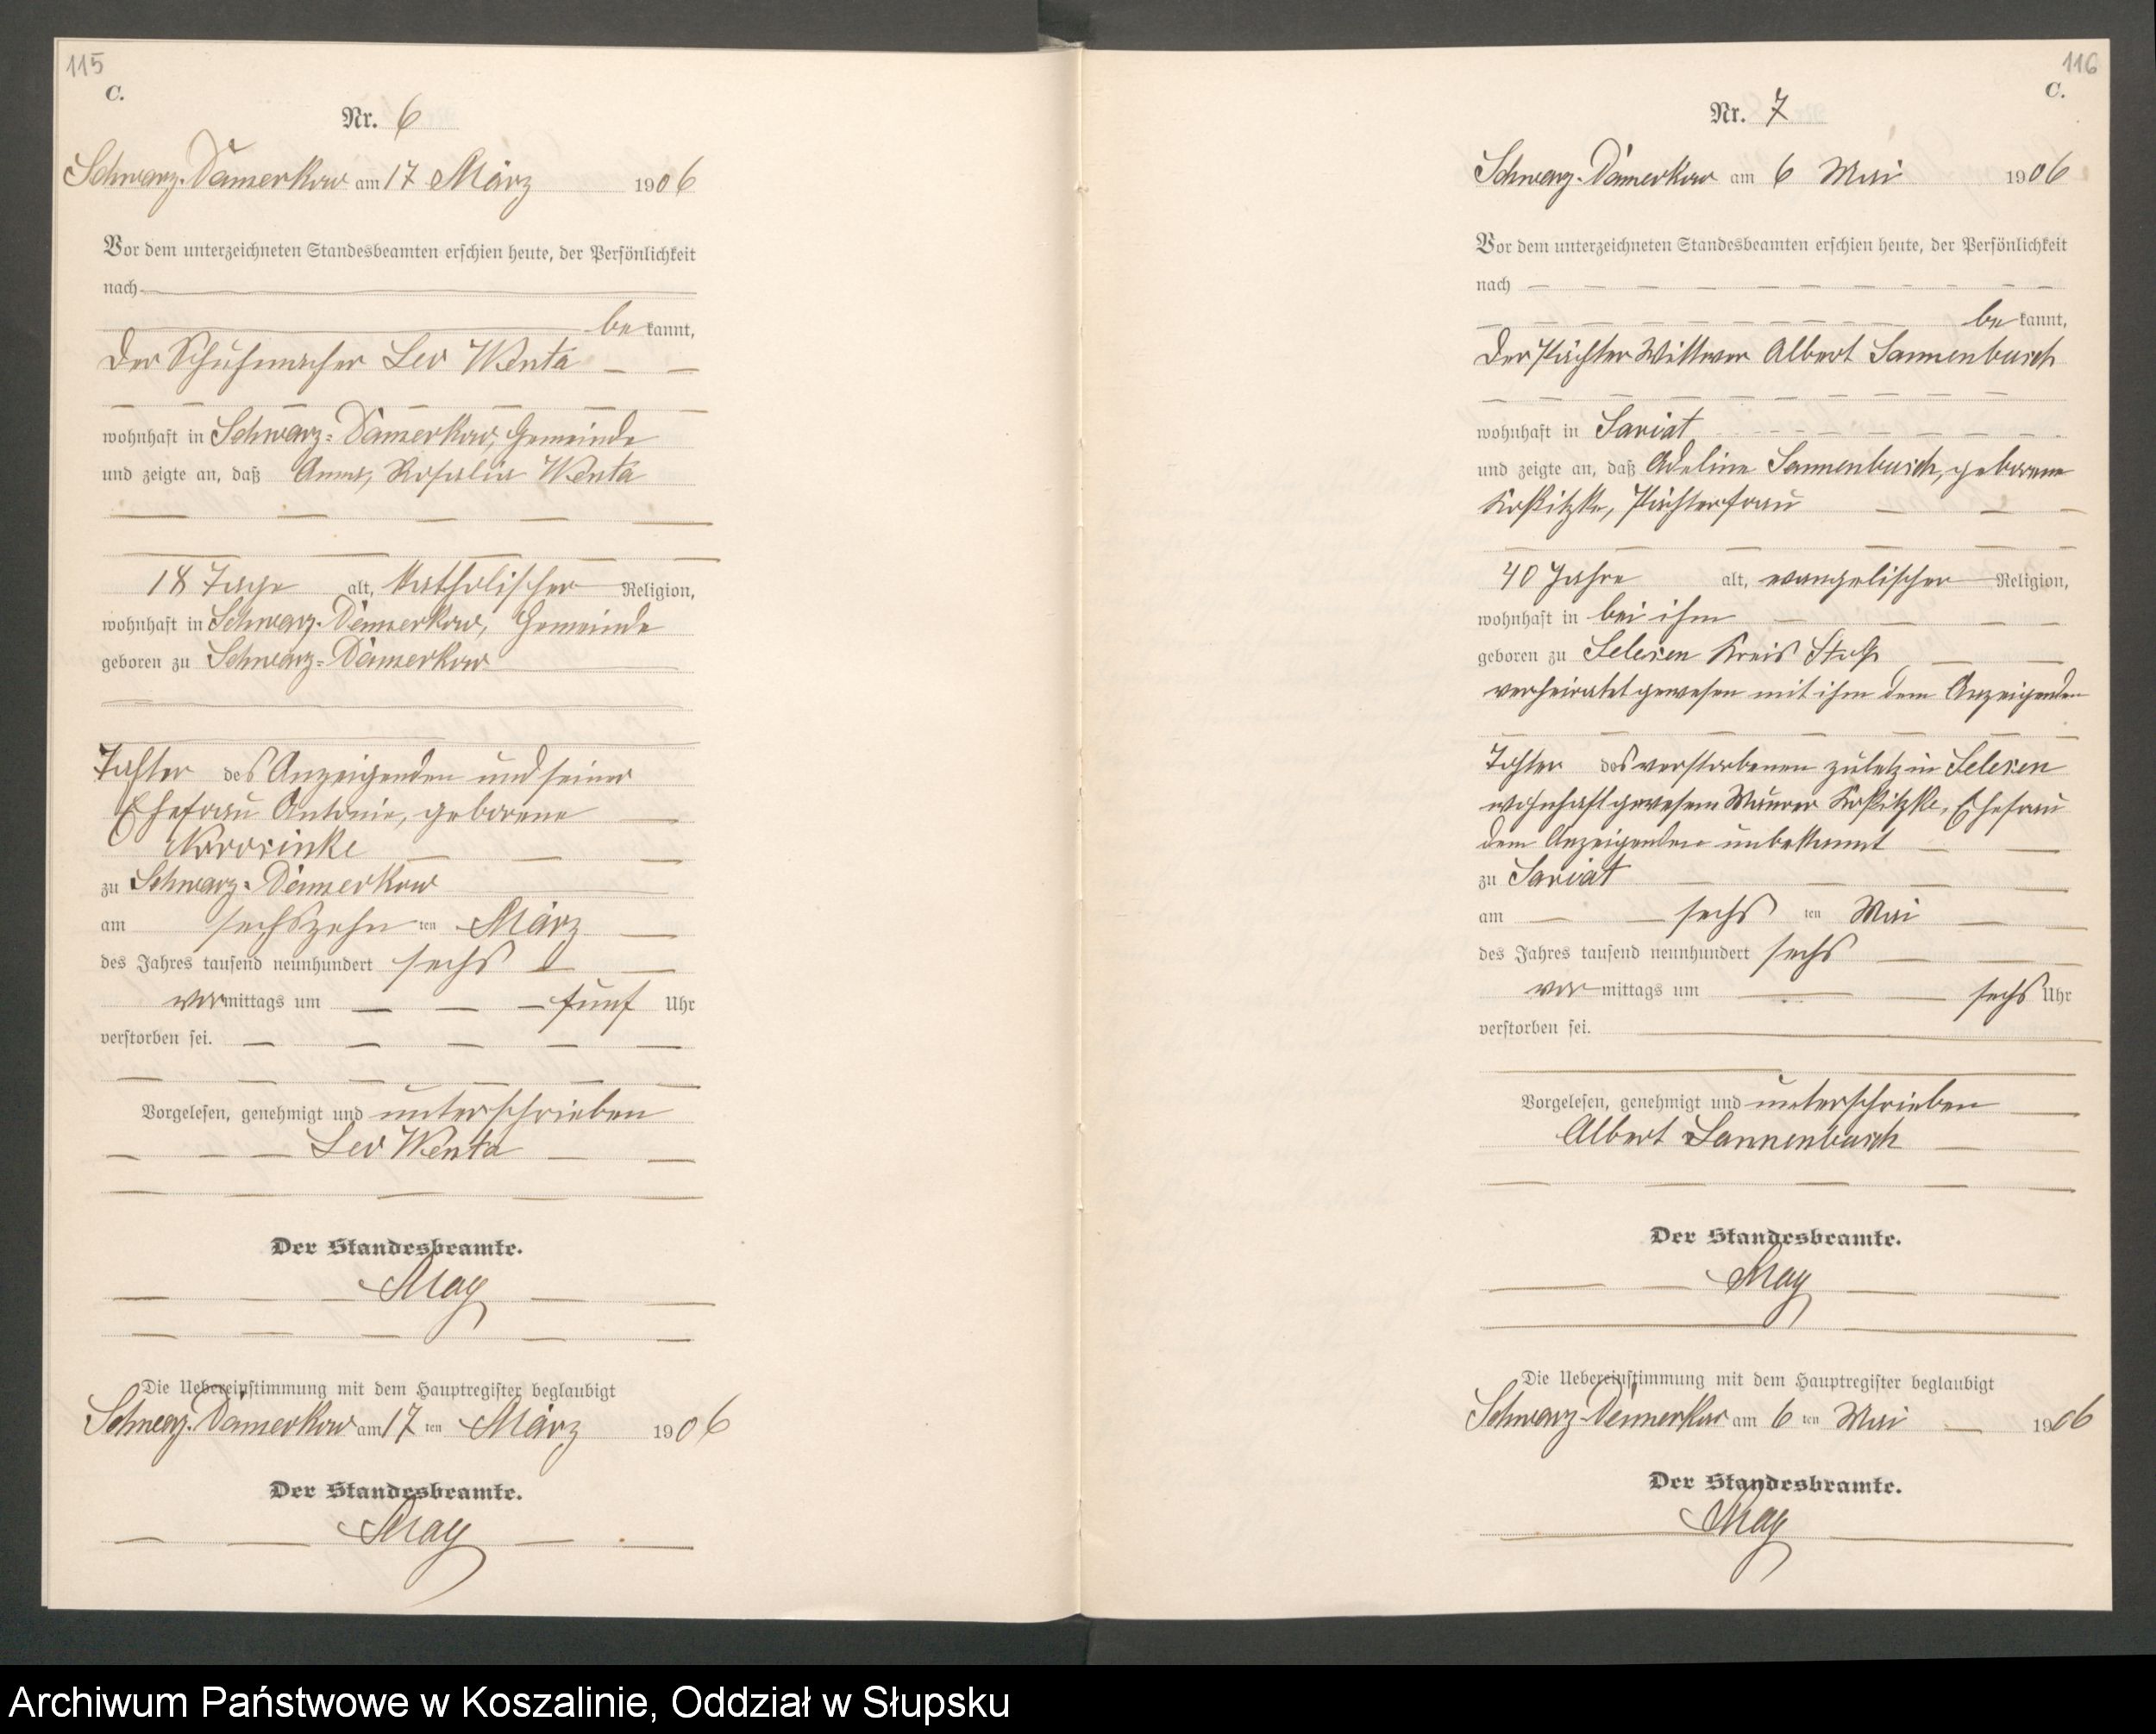 115
C.
Nr. 6
Schwarz-Damerkow am 17 März 1906
Vor dem unterzeichneten Standesbeamten erschien heute, der Persönlichkeit
nach
bekannt,
der Schuhmacher Leo Wenta
wohnhaft in Schwarz-Damerkow, Gemeinde
und zeigte an, daß Anna, Rosalia Wenta
18 Tage alt, katholischer Religion,
wohnhaft in Schwarz-Damerkow, Gemeinde
geboren zu Schwarz-Damerkow
Tochter des Anzeigenden und seiner
Ehefrau Antonie, geborene
zu Schwarz-Damerkow
am sechszehnten März
des Jahres tausend neunhundert sechs
vormittags um fünf Uhr
verstorben sei.
Vorgelesen, genehmigt und unterschrieben
Leo Wenta
Der Standesbeamte.
May
Die Uebereinstimmung mit dem Hauptregister beglaubigt
Schwarz-Damerkow am 17ten März 1906
Der Standesbeamte.
May
116
C.
Nr. 7
Schwarz-Damerkow am 6 Mai 1906
Vor dem unterzeichneten Standesbeamten erschien heute, der Persönlichkeit
nach
bekannt,
der Pächter Wittwer Albert Sannenbusch
wohnhaft in Sariat
und zeigte an, daß Adeline Sannenbusch, geborene
Pächterfrau
40 Jahre alt, evangelischer Religion,
wohnhaft in bei ihm
geboren zu Selesen Kreis Stolp
verheiratet gewesen mit ihm dem Anzeigenden
Tochter des verstorbenen zuletz in Selesen
wohnhaft gewesen Maurer Ehefrau
dem Anzeigenden unbekannt
zu Sariat
am sechsten Mai
des Jahres tausend neunhundert sechs
vormittags um sechs Uhr
verstorben sei.
Vorgelesen, genehmigt und unterschrieben
Albert Sannenbusch
Der Standesbeamte.
May
Die Uebereinstimmung mit dem Hauptregister beglaubigt
Schwarz-Damerkow am 6ten Mai 1906
Der Standesbeamte.
May
Archiwum Państwowe w Koszalinie, Oddział w Słupsku